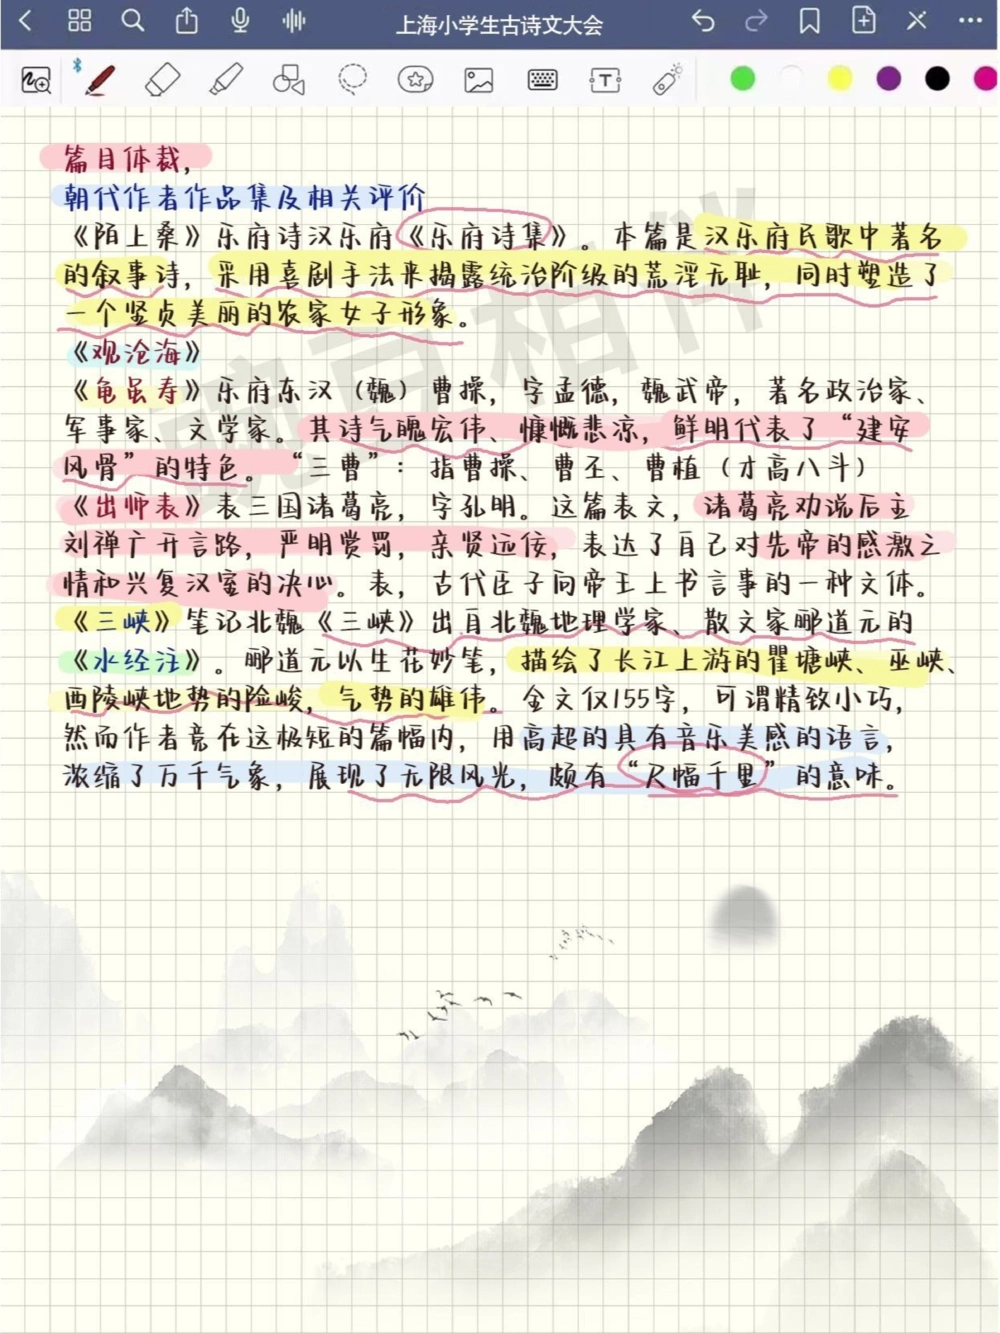 上海小学生古诗文大会
篇目体裁,
朝代作者作品集及相关评价
《陌上桑》乐府诗汉乐府《乐府诗集》。本篇是汉乐府民歌中著名
的叙事诗,采用喜剧手法来揭露统治阶级的荒淫无耻,同时塑造了
一个坚贞美丽的农家女子形象。
《观沧海》
《龟虽寿》乐府东汉(魏)曹操,字孟德,魏武帝,著名政治家、
军事家、文学家。其诗气魄宏伟、慷慨悲凉,鲜明代表了“建安
风骨”的特色。“三曹”:指曹操、曹丕、曹植(才高八斗)
《出师表》表三国诸葛亮,字孔明。这篇表文,诸葛亮劝说后主
刘禅广开言路,严明赏罚,亲贤远佞,表达了自己对先帝的感激之
情和兴复汉室的决心。表,古代臣子向帝王上书言事的一种文体。
《三峡》笔记北魏《三峡》出自北魏地理学家、散文家郦道元的
《水经注》。郦道元以生花妙笔,描绘了长江上游的瞿塘峡、巫峡、
西陵峡地势的险峻,气势的雄伟。全文仅155字,可谓精致小巧,
然而作者竟在这极短的篇幅内,用高超的具有音乐美感的语言,
浓缩了万千气象,展现了无限风光,颇有“尺幅千里”的意味。
豌豆相伴